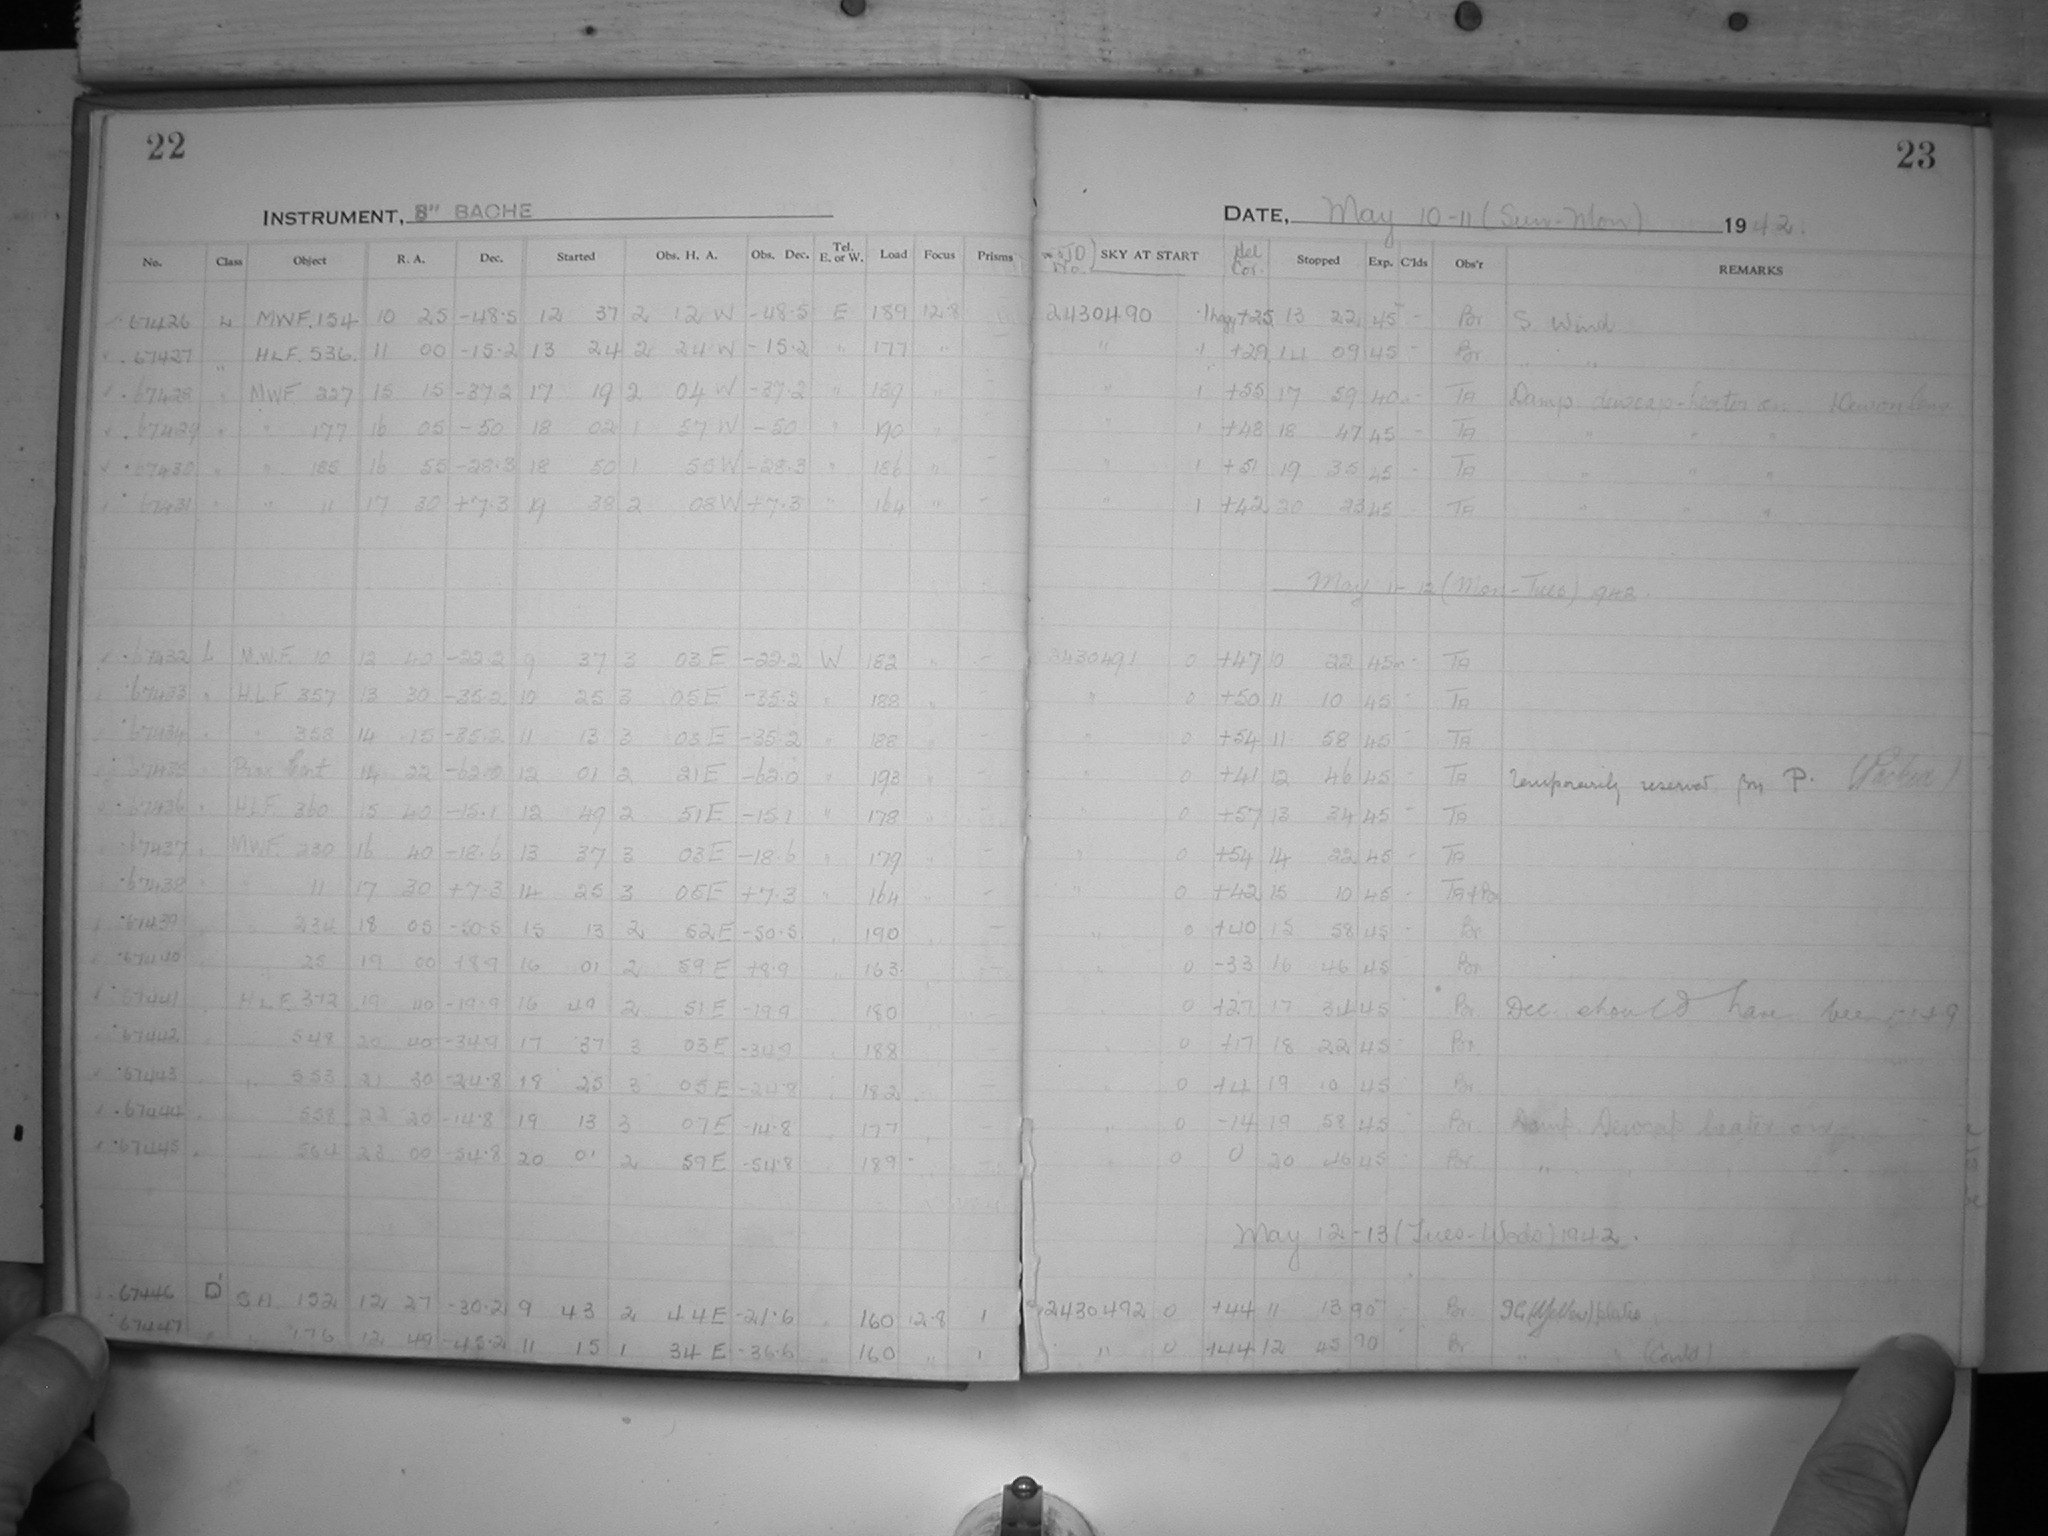 22
23
INSTRUMENT, 8" BACHE
DATE, May 10-11 (Sun-Mon) 1942.
No. Class Object R. A. Dec. Started Obs. H. A. Obs. Dec. Tel. E. or W. Load Focus Prisms JD No. SKY AT START Hel Cor. Stopped Exp. C'lds Obs'r REMARKS
67426 L MWF. 154 10 25 -48.5 12 37 2 12 W -48.5 E 189 12.8 - 2430490 +25 13 22 45 - Br S. Wind
67427 " HLF. 536 11 00 -15.2 13 24 2 24 W -15.2 " 177 " - " 1 +29 14 09 45 - Br " "
67428 " MWF. 227 15 15 -37.2 17 19 2 04 W -37.2 " 189 " - " 1 +55 17 59 40 - TA Damp dewcap-heater on.
67429 " " 177 16 05 -50 18 02 1 57 W -50 " 190 " - " 1 +48 18 47 45 - TA " " "
67430 " " 188 16 55 -28.3 18 50 1 55 W -28.3 " 186 " - " 1 +51 19 35 45 - TA " " "
67431 " " 11 17 30 +7.3 19 38 2 08 W +7.3 " 164 " - " 1 +42 20 23 45 TA " " "
May 11-12 (Mon-Tues) 1942.
67432 L M.W.F. 10 12 40 -22.2 9 37 3 03 E -22.2 W 182 " - 2430491 0 +47 10 22 45m - TA
67433 " H.L.F. 357 13 30 -35.2 10 25 3 05 E -35.2 " 188 " - " 0 +50 11 10 45 - TA
67434 " " 358 14 15 -35.2 11 13 3 03 E -35.2 " 188 " - " 0 +54 11 58 45 - TA
67435 " Prox Cent 14 22 -62.0 12 01 2 21 E -62.0 " 193 " - " 0 +41 12 46 45 - TA temporarily reserved for P.
67436 " HLF. 360 15 40 -15.1 12 49 2 51 E -15.1 " 178 " - " 0 +57 13 34 45 - TA
67437 " MWF. 230 16 40 -18.6 13 37 3 03 E -18.6 " 179 " - " 0 +54 14 22 45 - TA
67438 " " 11 17 30 +7.3 14 25 3 05 E +7.3 " 164 " - " 0 +42 15 10 45 - TA+Br
67439 234 18 05 -50.5 15 13 2 52 E -50.5 190 - " 0 +40 15 58 45 - Br
67440 25 19 00 +8.9 16 01 2 59 E +8.9 163 0 -33 16 46 45 Br
67441 H.L.F. 312 19 40 -19.9 16 49 2 51 E -19.9 180 0 +27 17 34 45 Br Dec. should have been
67442 548 20 40 -34.9 17 37 3 03 E -34.9 188 - 0 +17 18 22 45 Br
67443 553 21 30 -24.8 18 25 3 05 E -24.8 182 - 0 +4 19 10 45 Br
67444 558 22 20 -14.8 19 13 3 07 E -14.8 177 - 0 -14 19 58 45 Br Damp. Dewcap heater on
67445 564 23 00 -54.8 20 01 2 59 E -54.8 189 - 0 0 20 46 45 Br "
May 12-13 (Tues-Weds) 1942.
67446 D' S.A. 152 12 27 -30.2 9 43 2 44 E -21.6 160 12.8 1 2430492 0 +44 11 13 90 Br (Yellow) Plates
67447 " 176 12 49 -45.2 11 15 1 34 E -36.6 " 160 " 1 " 0 +44 12 45 90 Br " " (Contd)